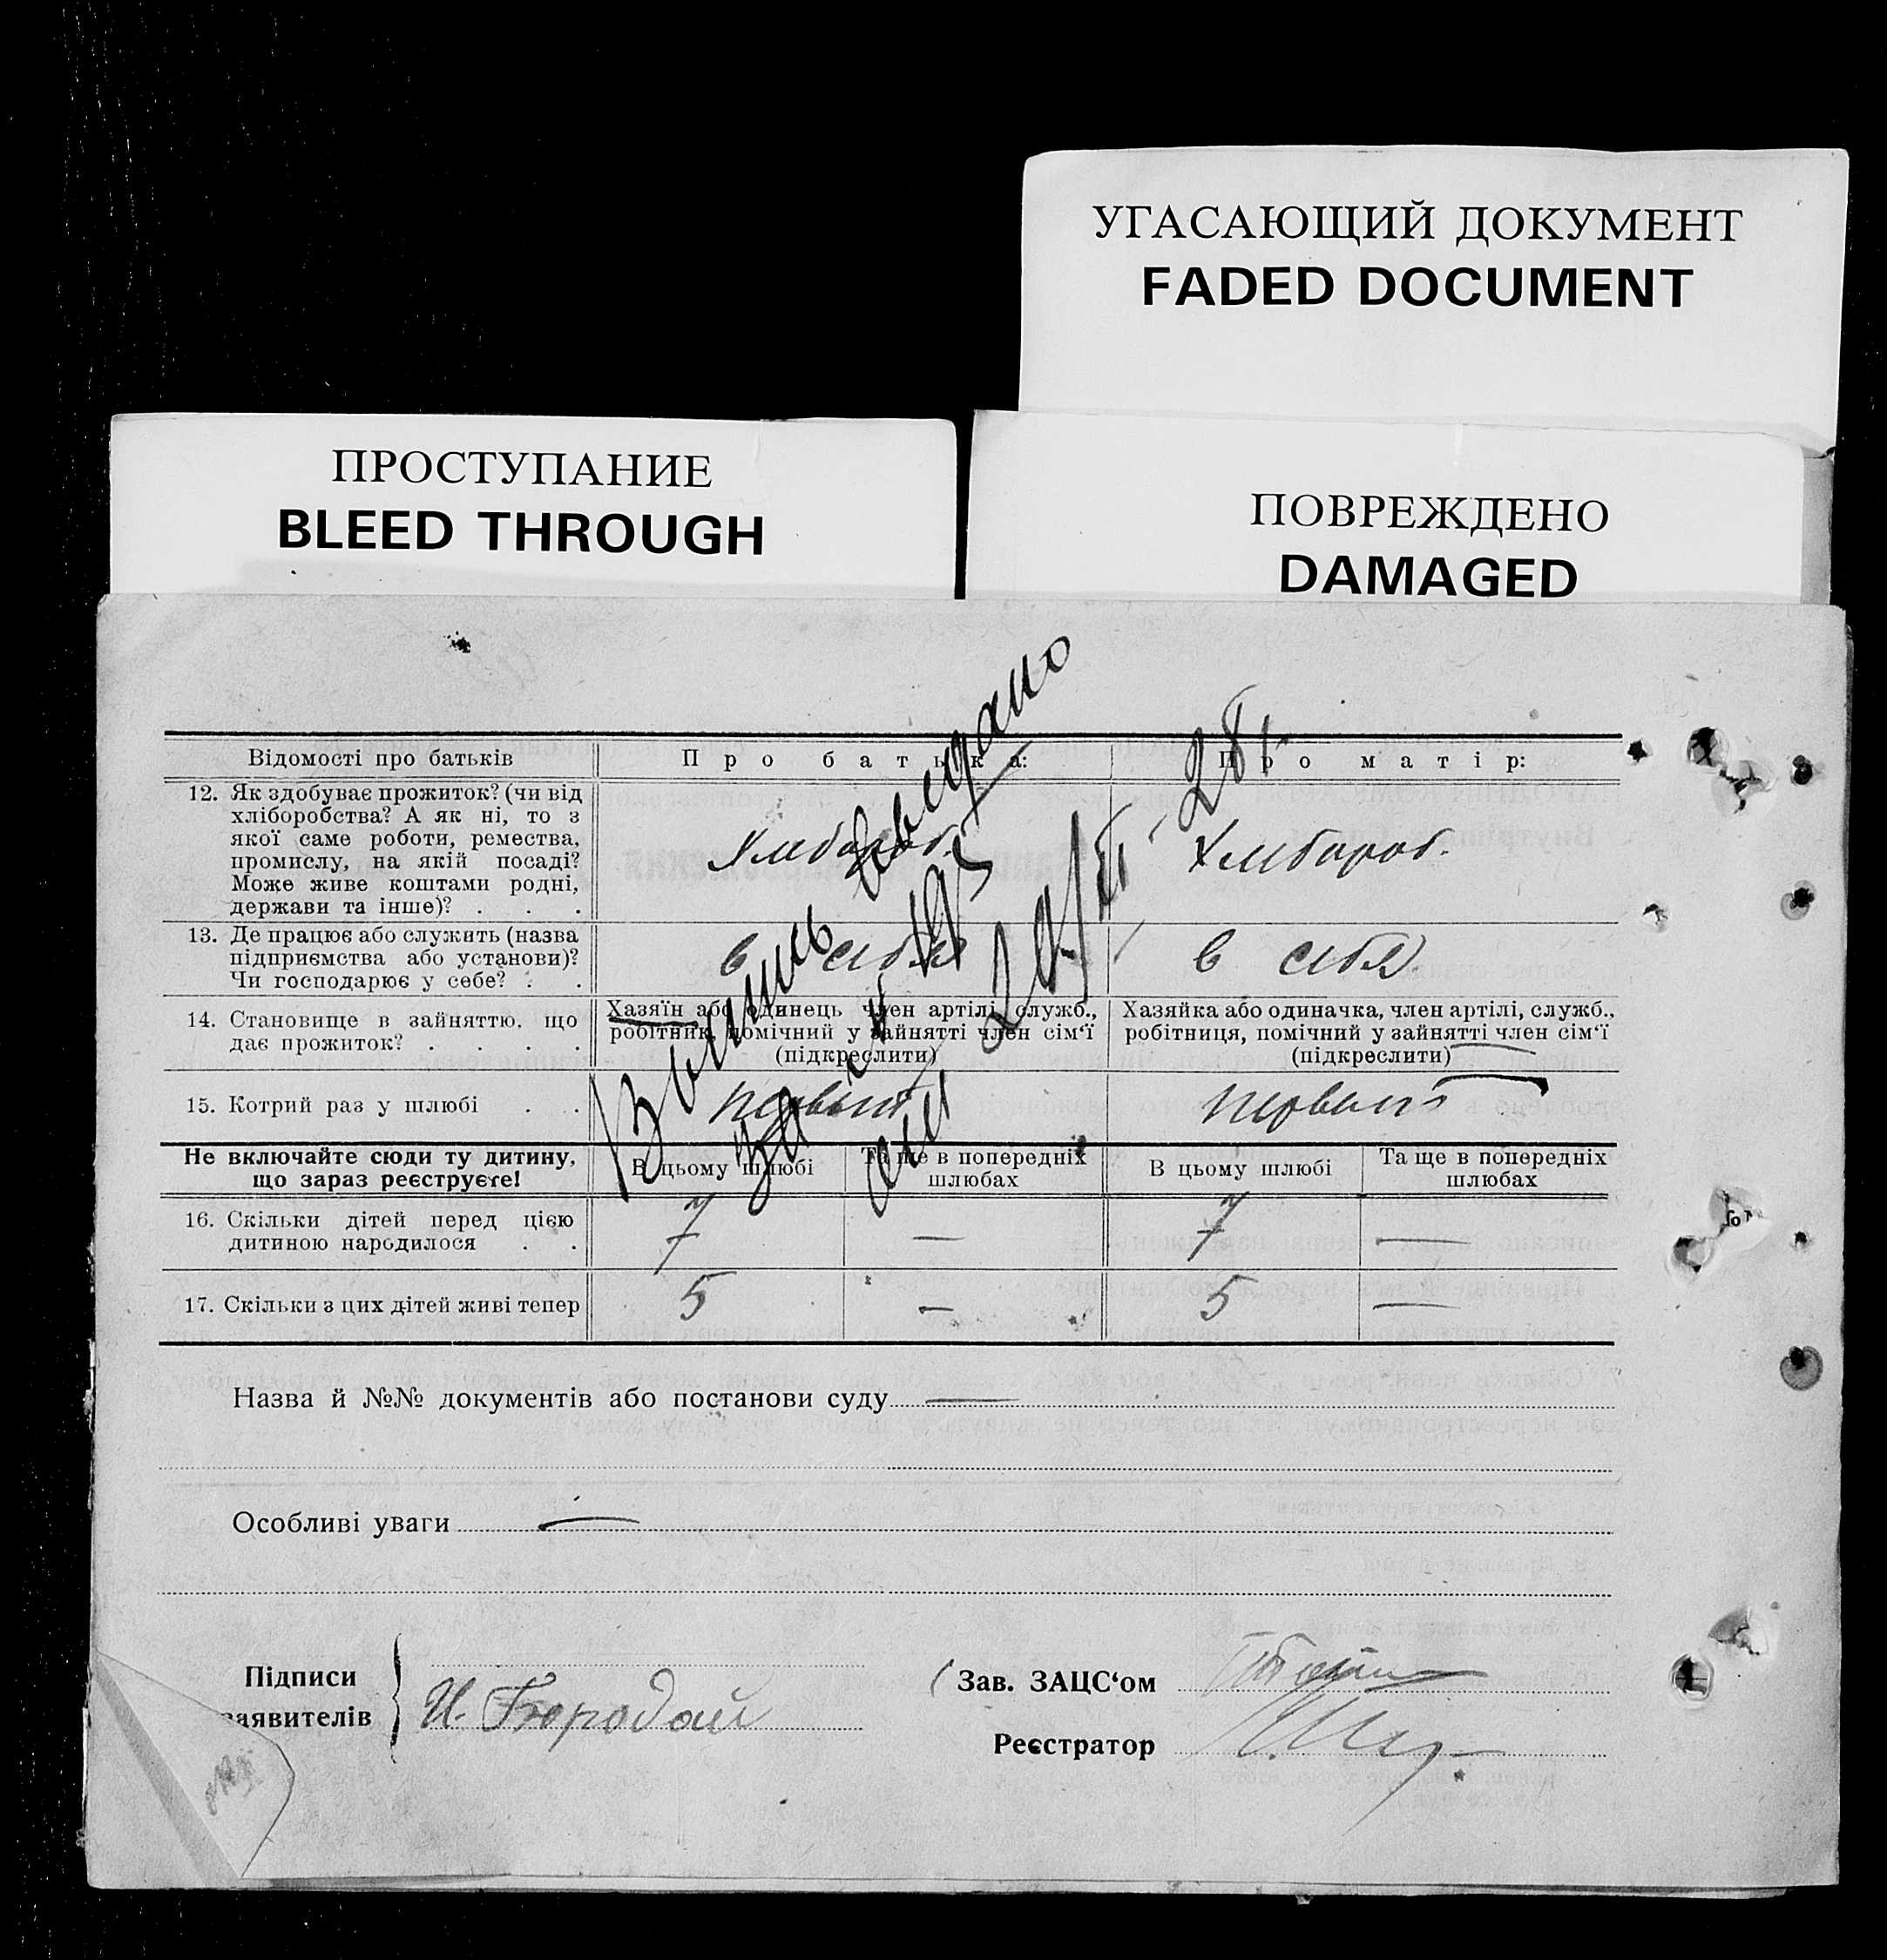 УГАСАЮЩИЙ ДОКУМЕНТ
FADED DOCUMENT
ПРОСТУПАНИЕ
BLEED THROUGH
ПОВРЕЖДЕНО
DAMAGED
Відомості про батьків
Про батька:
Про матір:
12. Як здобуває прожиток? (чи від
хліборобства? А як ні, то з
якої саме роботи, ремества,
промислу, на якій посаді?
Може живе коштами родні,
держави та інше)? . . .
Хлебороб.
Хлебороб.
13. Де працює або служить (назва
підприємства або установи)?
Чи господарює у себе? . .
в себя
в себя
14. Становище в зайняттю, що
дає прожиток? . . . .
Хазяїн або одинець член артілі, служб.,
робітник, помічний у зайнятті член сім‘ї
(підкреслити)
Хазяйка або одиначка, член артілі, служб.,
робітниця, помічний у зайнятті член сім‘ї
(підкреслити)
15. Котрий раз у шлюбі . .
первый
первый
Выпись выдано
за №
28
Не включайте сюди ту дитину,
що зараз реєструєте!
В цьому шлюбі
Та ще в попередніх
шлюбах
В цьому шлюбі
Та ще в попередніх
шлюбах
16. Скільки дітей перед цією
дитиною народилося . .
7
—
7
—
17. Скільки з цих дітей живі тепер
5
—
5
—
Назва й №№ документів або постанови суду —
Особливі уваги —
Підписи
заявителів
И. Бородай
Зав. ЗАЦС‘ом
Реєстратор